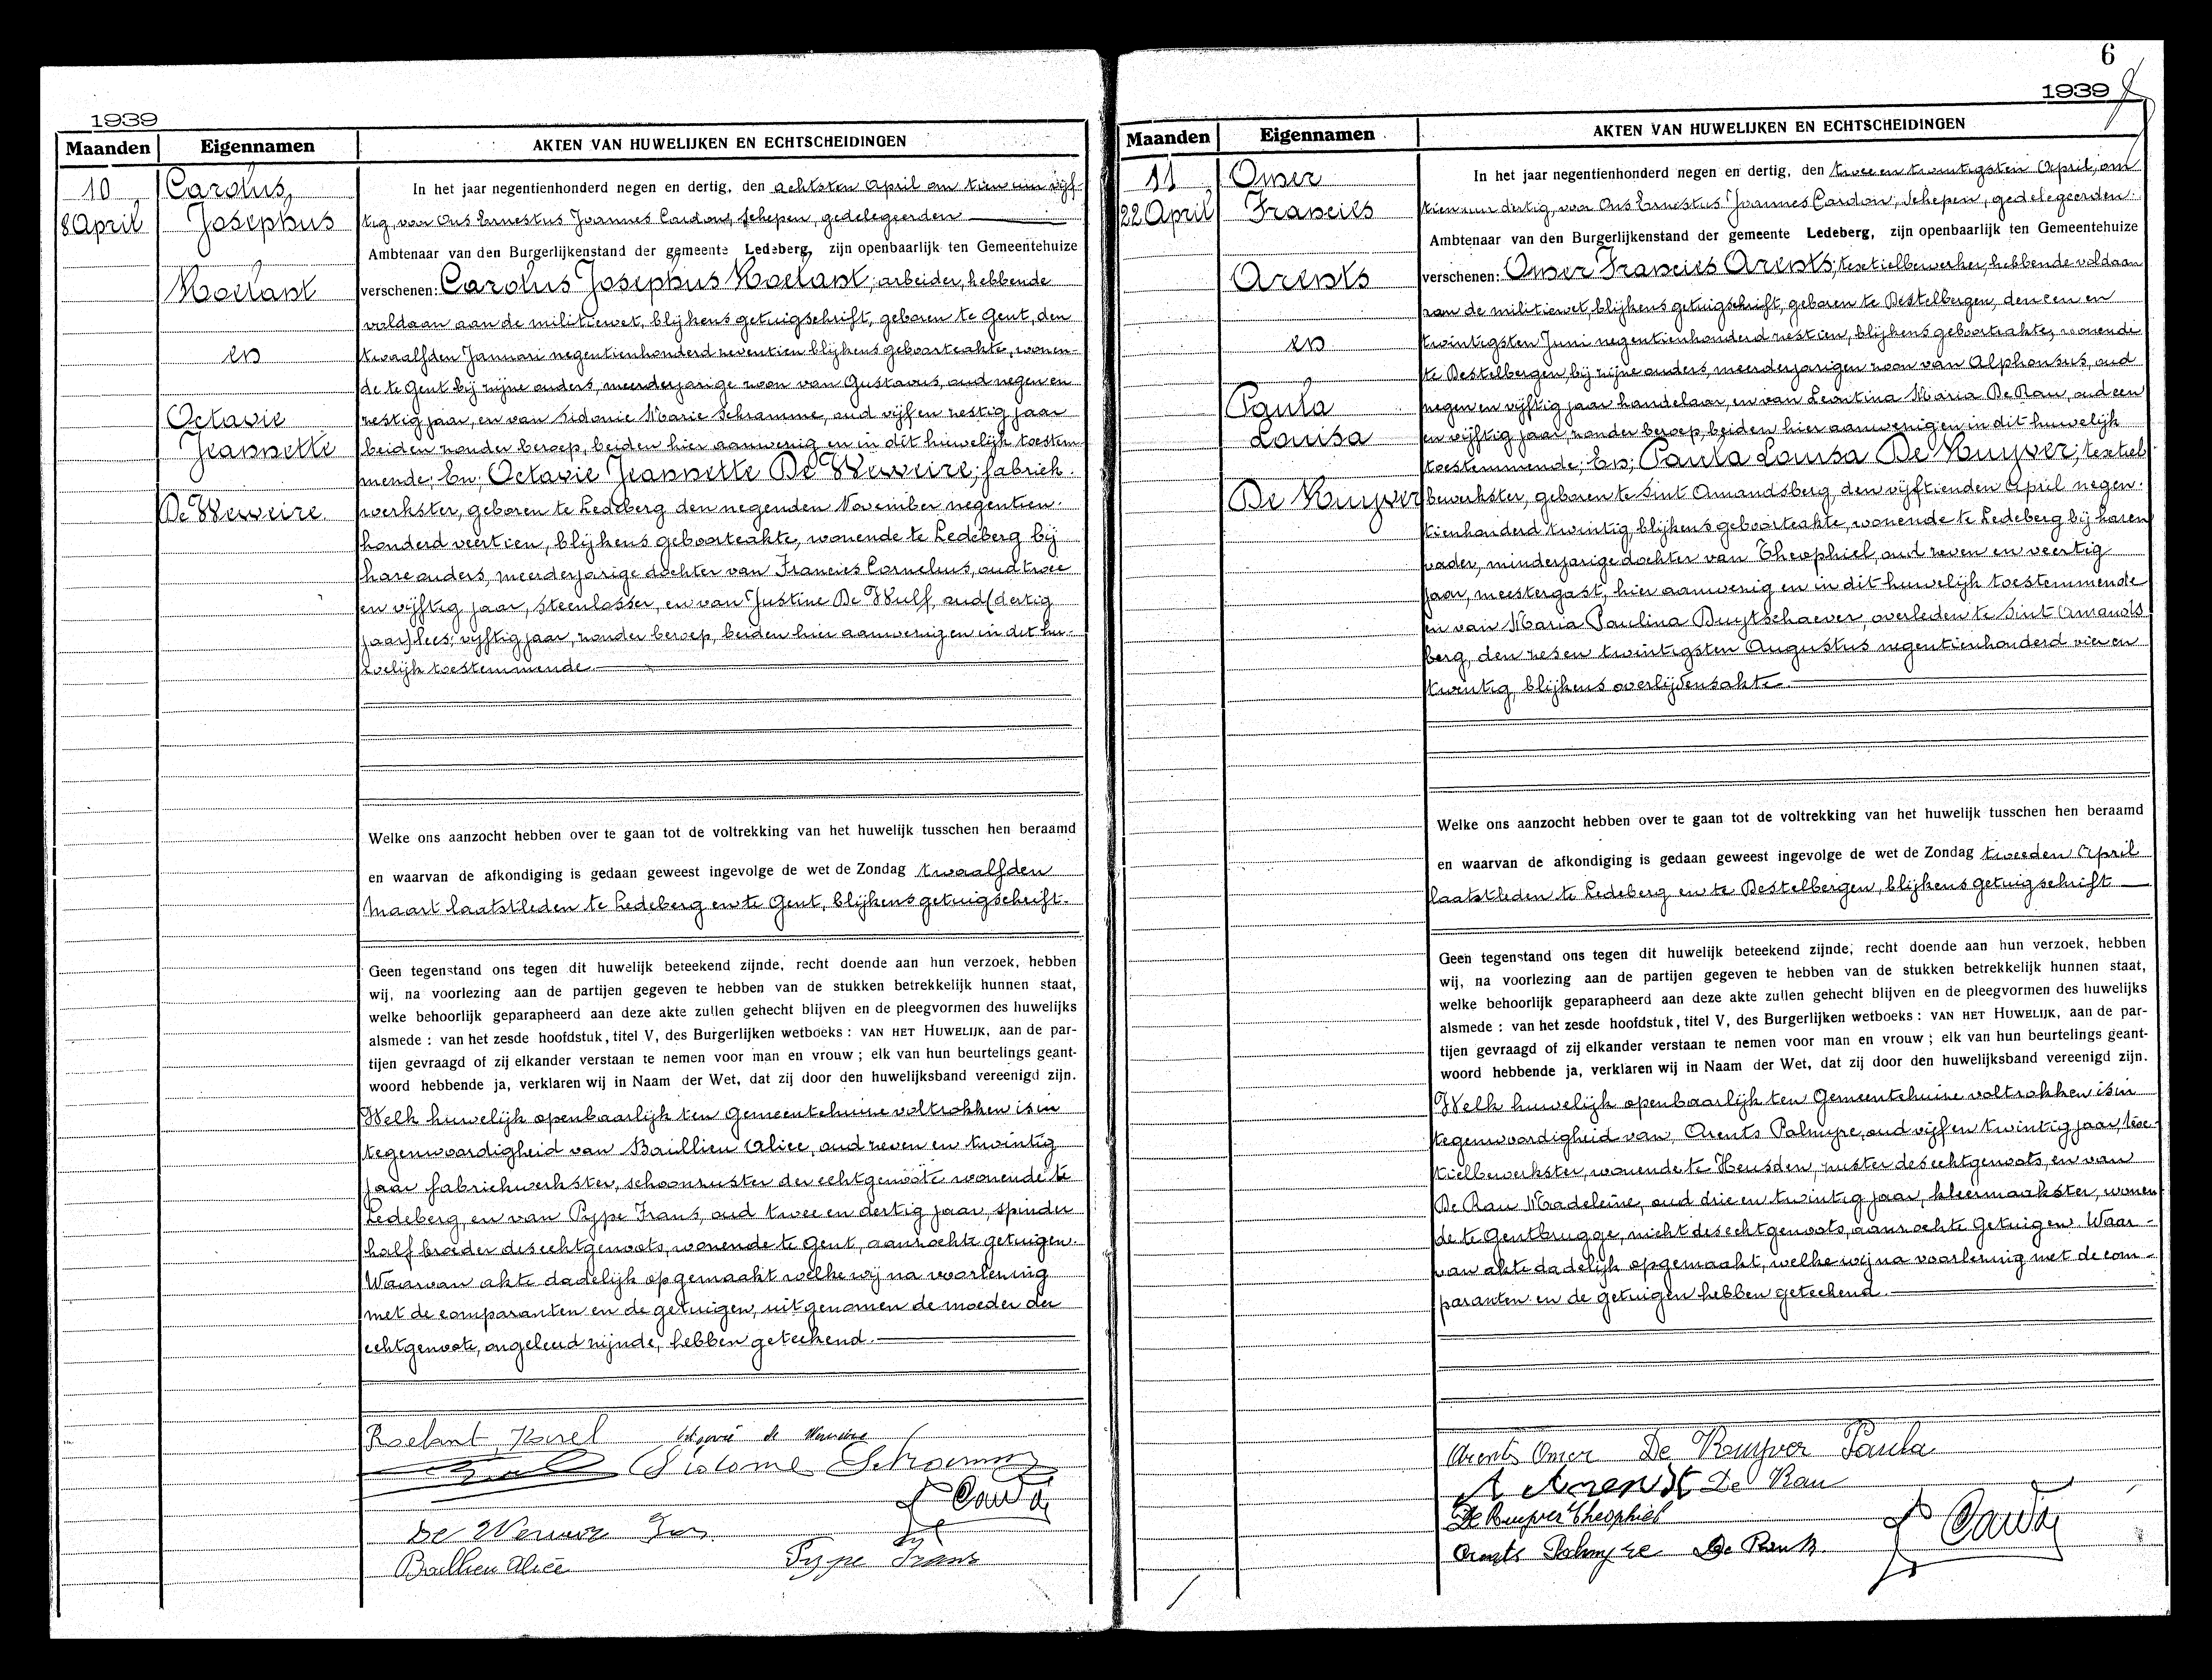 1939
Maanden Eigennamen AKTEN VAN HUWELIJKEN EN ECHTSCHEIDINGEN
10
8 April
Carolus,
Josephus
Roelant
en
Octavie
Jeannette
De Weweire
In het jaar negentienhonderd negen en dertig, den achtsten April om tien uur vijf-
tig, voor Ons Ernestus Joannes Cardon, schepen, gedelegeerden
Ambtenaar van den Burgerlijkenstand der gemeente Ledeberg, zijn openbaarlijk ten Gemeentehuize
verschenen: Carolus Josephus Roelant, arbeider, hebbende
voldaan aan de militiewet, blijkens getuigschrift, geboren te Gent, den
twaalfden Januari negentienhonderd zeventien blijkens geboorteakte, wonen-
de te Gent bij zijne ouders, meerderjarige zoon van Gustavus, oud negen en
zestig jaar, en van Sidonie Marie Schramme, oud vijf en zestig jaar
beiden zonder beroep, beiden hier aanwezig en in dit huwelijk toestem-
mende; En; Octavie Jeannette De Weweire; fabriek-
werkster, geboren te Ledeberg den negenden November negentien-
honderd veertien, blijkens geboorteakte, wonende te Ledeberg bij
hare ouders, meerderjarige dochter van Francies Cornelius, oud twee
en vijftig jaar, steenlosser, en van Justine De Wulf, oud (dertig
jaar) lees; vijftig jaar, zonder beroep, beiden hier aanwezig en in dit hu-
welijk toestemmende.
Welke ons aanzocht hebben over te gaan tot de voltrekking van het huwelijk tusschen hen beraamd
en waarvan de afkondiging is gedaan geweest ingevolge de wet de Zondag twaalfden
Maart laatstleden te Ledeberg en te Gent, blijkens getuigschrift.
Geen tegenstand ons tegen dit huwelijk beteekend zijnde, recht doende aan hun verzoek, hebben
wij, na voorlezing aan de partijen gegeven te hebben van de stukken betrekkelijk hunnen staat,
welke behoorlijk geparapheerd aan deze akte zullen gehecht blijven en de pleegvormen des huwelijks
alsmede : van het zesde hoofdstuk, titel V, des Burgerlijken wetboeks : VAN HET HUWELIJK, aan de par-
tijen gevraagd of zij elkander verstaan te nemen voor man en vrouw ; elk van hun beurtelings geant-
woord hebbende ja, verklaren wij in Naam der Wet, dat zij door den huwelijksband vereenigd zijn.
Welk huwelijk openbaarlijk ten Gemeentehuize voltrokken is in
tegenwoordigheid van Baillieu Alice, oud zeven en twintig
jaar fabriekwerkster, schoonzuster der echtgenoote wonende te
Ledeberg, en van Pype Frans, oud twee en dertig jaar, spinder
half broeder des echtgenoots, wonende te Gent, aanzochte getuigen.
Waarvan akte dadelijk opgemaakt welke wij na voorlezing
met de comparanten en de getuigen, uitgenomen de moeder der
echtgenoote, ongeleerd zijnde, hebben geteekend.
Roelant Karel
Baillieu Alice Pype Frans
6
1939
Maanden Eigennamen AKTEN VAN HUWELIJKEN EN ECHTSCHEIDINGEN
11
22 April
Omer
Francies
Arents
en
Paula
Louisa
De Kuyver
In het jaar negentienhonderd negen en dertig, den twee en twintigsten April, om
tien uur dertig, voor Ons Ernestus Joannes Cardon, schepen, gedelegeerden
Ambtenaar van den Burgerlijkenstand der gemeente Ledeberg, zijn openbaarlijk ten Gemeentehuize
verschenen: Omer Francies Arents; textielbewerker, hebbende voldaan
aan de militiewet, blijkens getuigschrift, geboren te Destelbergen, den een en
twintigsten Juni negentienhonderd zestien, blijkens geboorteakte, wonende
te Destelbergen, bij zijne ouders, meerderjarigen zoon van Alphonsus, oud
negen en vijftig jaar handelaar, en van Leontina Maria De Rau, oud een
en vijftig jaar, zonder beroep, beiden hier aanwezig en in dit huwelijk
toestemmende; En; Paula Louisa De Kuyver; textiel-
bewerkster, geboren te Sint Amandsberg, den vijftienden April negen-
tienhonderd twintig, blijkens geboorteakte, wonende te Ledeberg bij haren
vader, minderjarige dochter van Theophiel, oud zeven en veertig
jaar, meestergast, hier aanwezig en in dit huwelijk toestemmende
en van Maria Paulina Buytschaever, overleden te Sint Amands-
berg, den zes en twintigsten Augustus negentienhonderd vier en
twintig, blijkens overlijdensakte.
Welke ons aanzocht hebben over te gaan tot de voltrekking van het huwelijk tusschen hen beraamd
en waarvan de afkondiging is gedaan geweest ingevolge de wet de Zondag tweeden April
laatstleden te Ledeberg en te Destelbergen, blijkens getuigschrift
Geen tegenstand ons tegen dit huwelijk beteekend zijnde; recht doende aan hun verzoek, hebben
wij, na voorlezing aan de partijen gegeven te hebben van de stukken betrekkelijk hunnen staat,
welke behoorlijk geparapheerd aan deze akte zullen gehecht blijven en de pleegvormen des huwelijks
alsmede : van het zesde hoofdstuk, titel V, des Burgerlijken wetboeks : VAN HET HUWELIJK, aan de par-
tijen gevraagd of zij elkander verstaan te nemen voor man en vrouw ; elk van hun beurtelings geant-
woord hebbende ja, verklaren wij in Naam der Wet, dat zij door den huwelijksband vereenigd zijn.
Welk huwelijk openbaarlijk ten Gemeentehuize voltrokken is in
tegenwoordigheid van, Arents Palmyre, oud vijf en twintig jaar, tex-
tielbewerkster, wonende te Heusden, zuster des echtgenoots, en van
De Rau Madeleine, oud drie en twintig jaar, kleermaakster, wonen-
de te Gentbrugge, nicht des echtgenoots, aanzochte getuigen. Waar-
van akte dadelijk opgemaakt, welke wij na voorlezing met de com-
paranten en de getuigen hebben geteekend.
Arents Omer De Kuyver Paula
A Arendt De Rau
De Kuyver Theophiel
Arents Palmyre De Rau M.